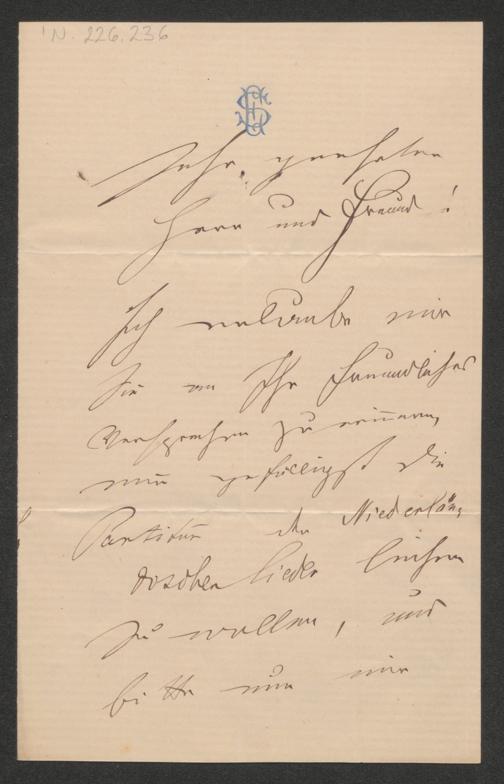 IN. 226.236
Sehr geehrter
Herr und Freund!
Ich erlaube mir
Sie an Ihr freundliches
Versprechen zu erinnern,
mir gefälligst die
Partitur der Niederlän,
dischen Lieder leihen
zu wollen, und
bitte nun mir